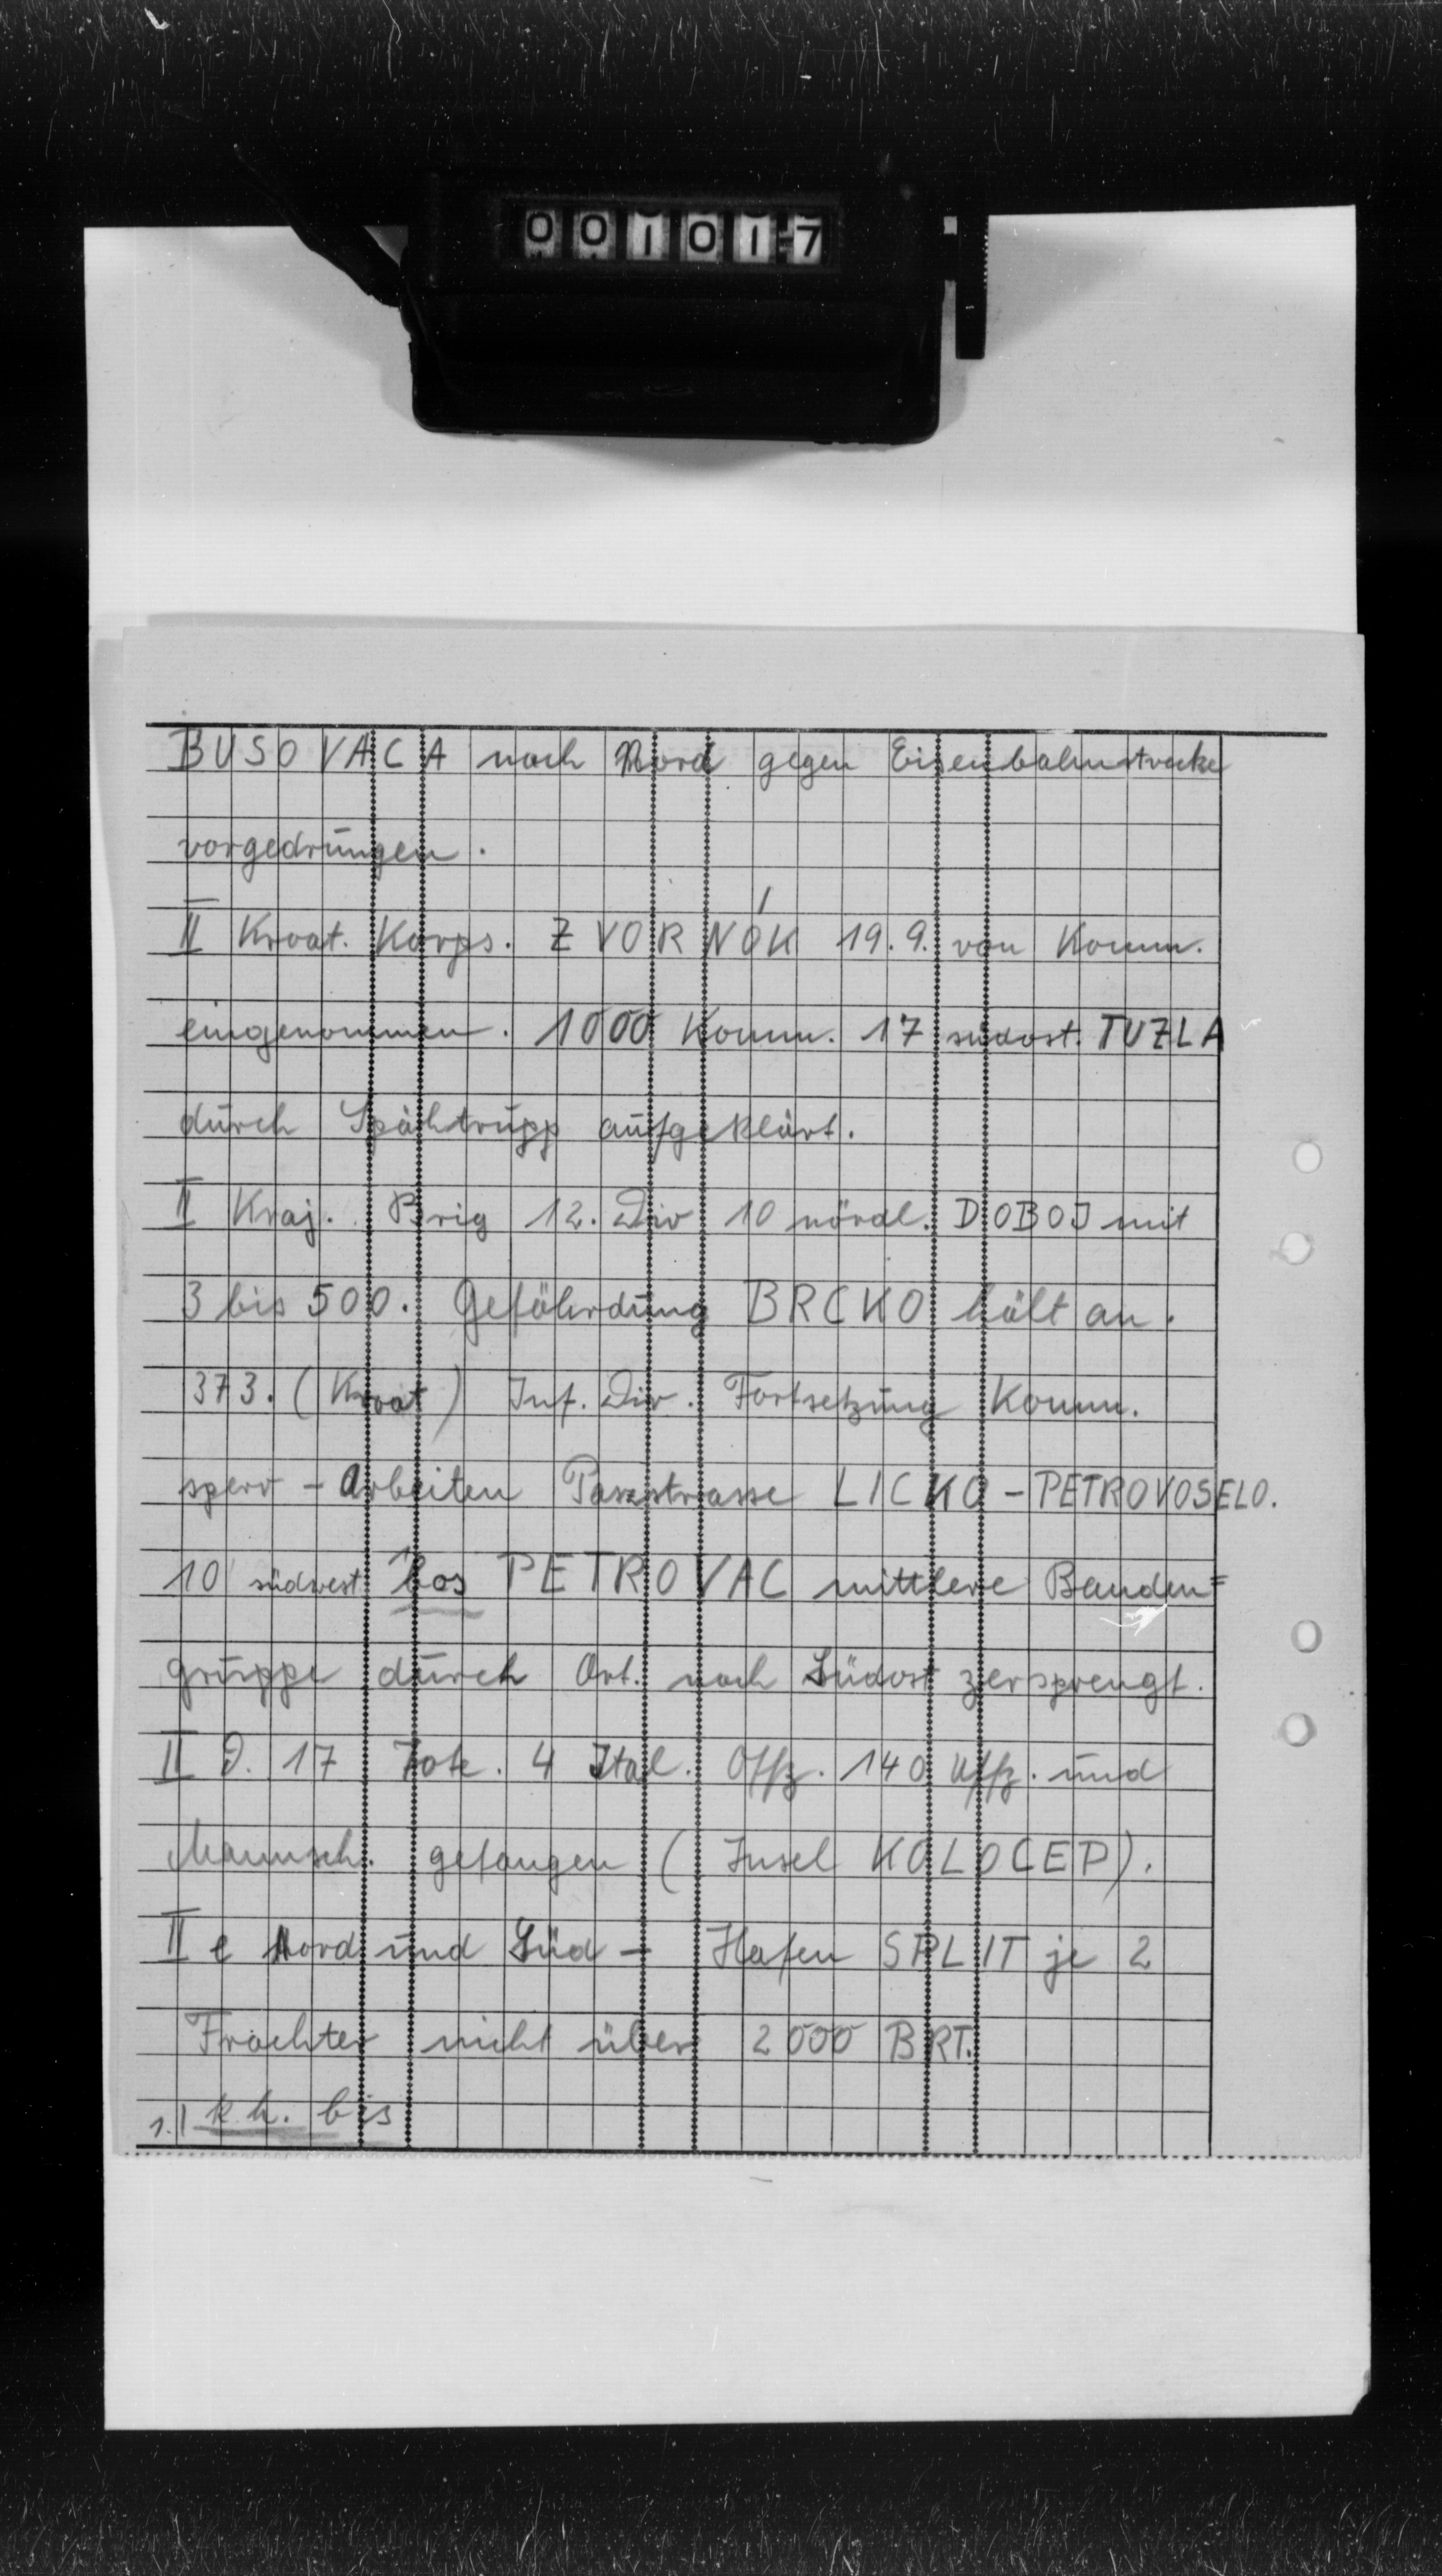 001017
BUSOVACA nach Nord gegen Eisenbahnstrecke
vorgedrungen.
II Kroat. Korps. ZVORNIK 19.9. von Komm.
eingenommen. 1000 Komm. 17 südost. TUZLA
durch Spähtrupp aufgeklärt.
II Kraj. Brig 12. Div 10 nördl. DOBOJ mit
3 bis 500. Gefährdung BRCKO hält an.
373. (Kroat) Inf. Div. Fortsetzung Komm.
sperr - Arbeiten Passstrasse LICKO - PETROVOSELO.
10 südwest. Bos PETROVAC mittlere Banden=
gruppe durch Art. nach Südost zersprengt.
II D. 17 Tote. 4 Ital. Offz. 140 Uffz. und
Mannsch. gefangen (Insel KOLOCEP).
II e Nord und Süd - Hafen SPLIT je 2
Frachter nicht über 2000 BRT.
k.h. bis